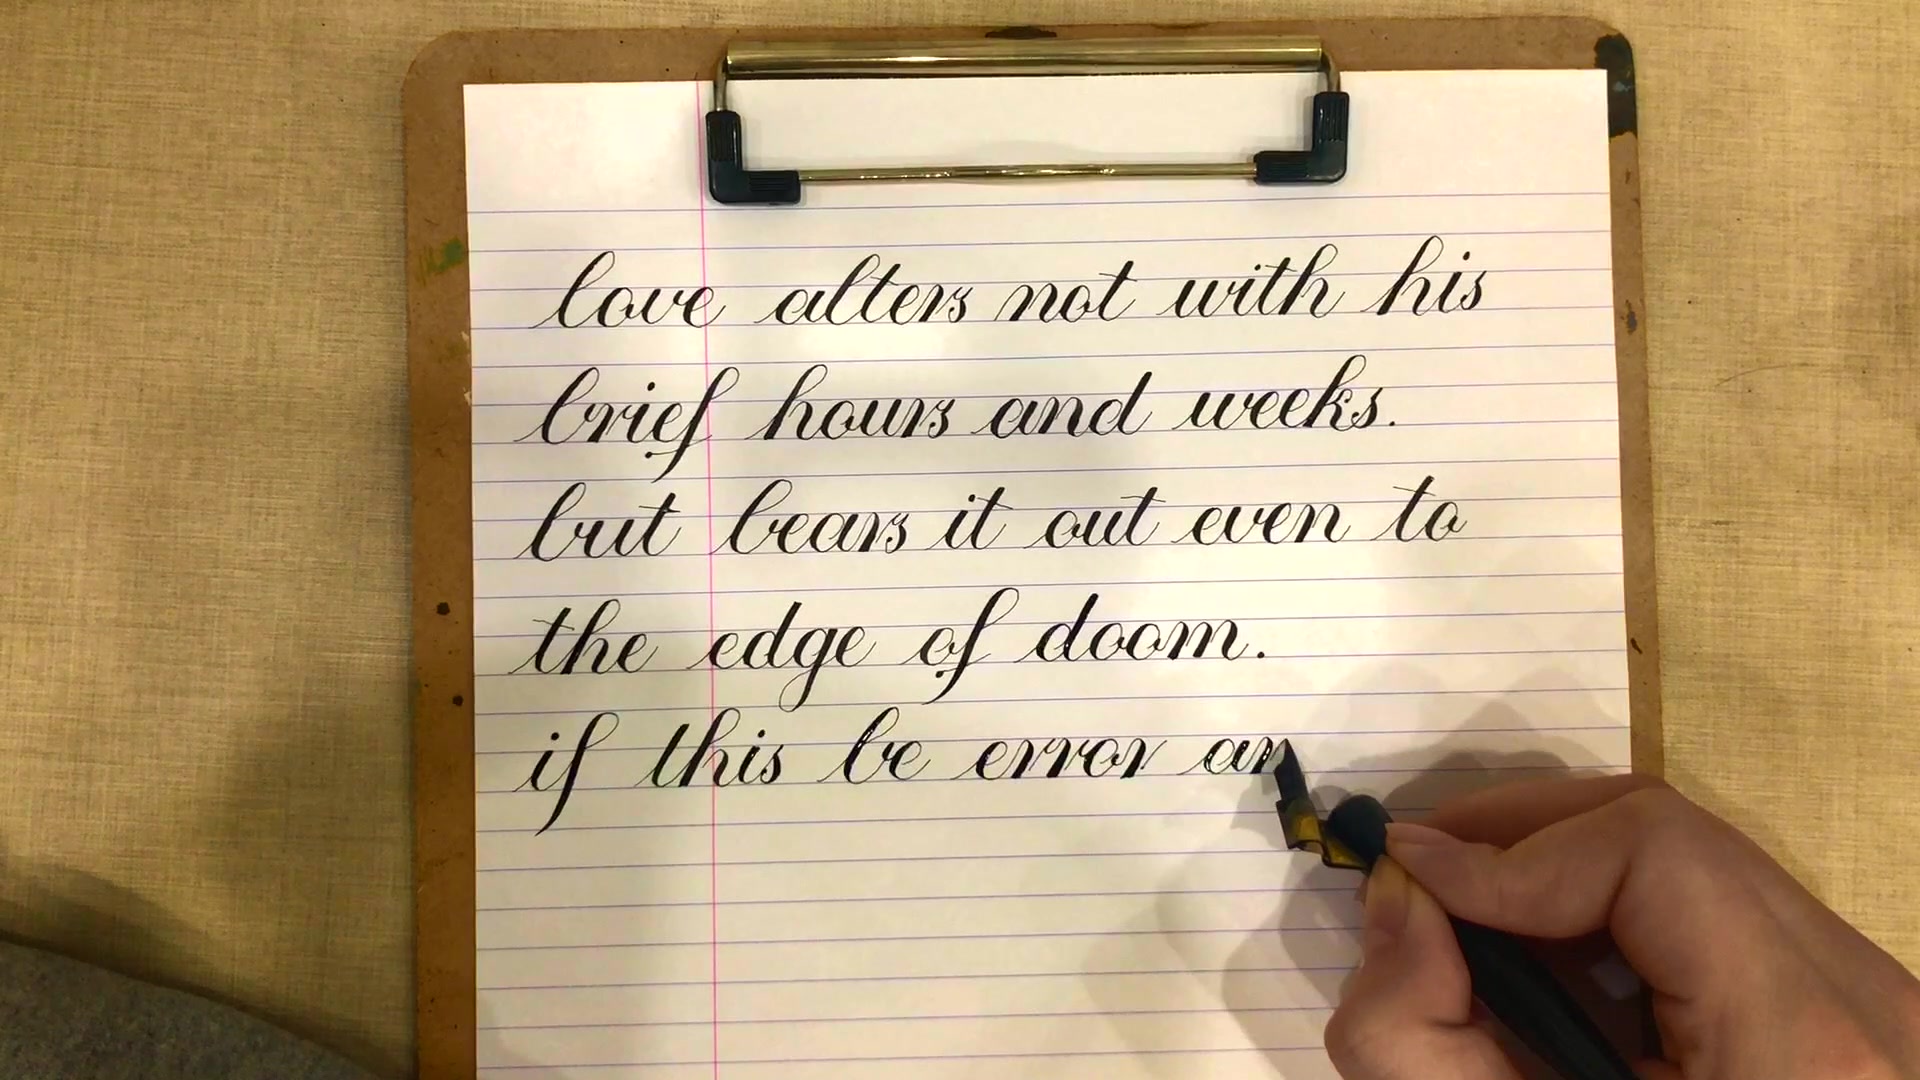 love alters not with his
brief hours and weeks.
but bears it out even to
the edge of doom.
if this be error an